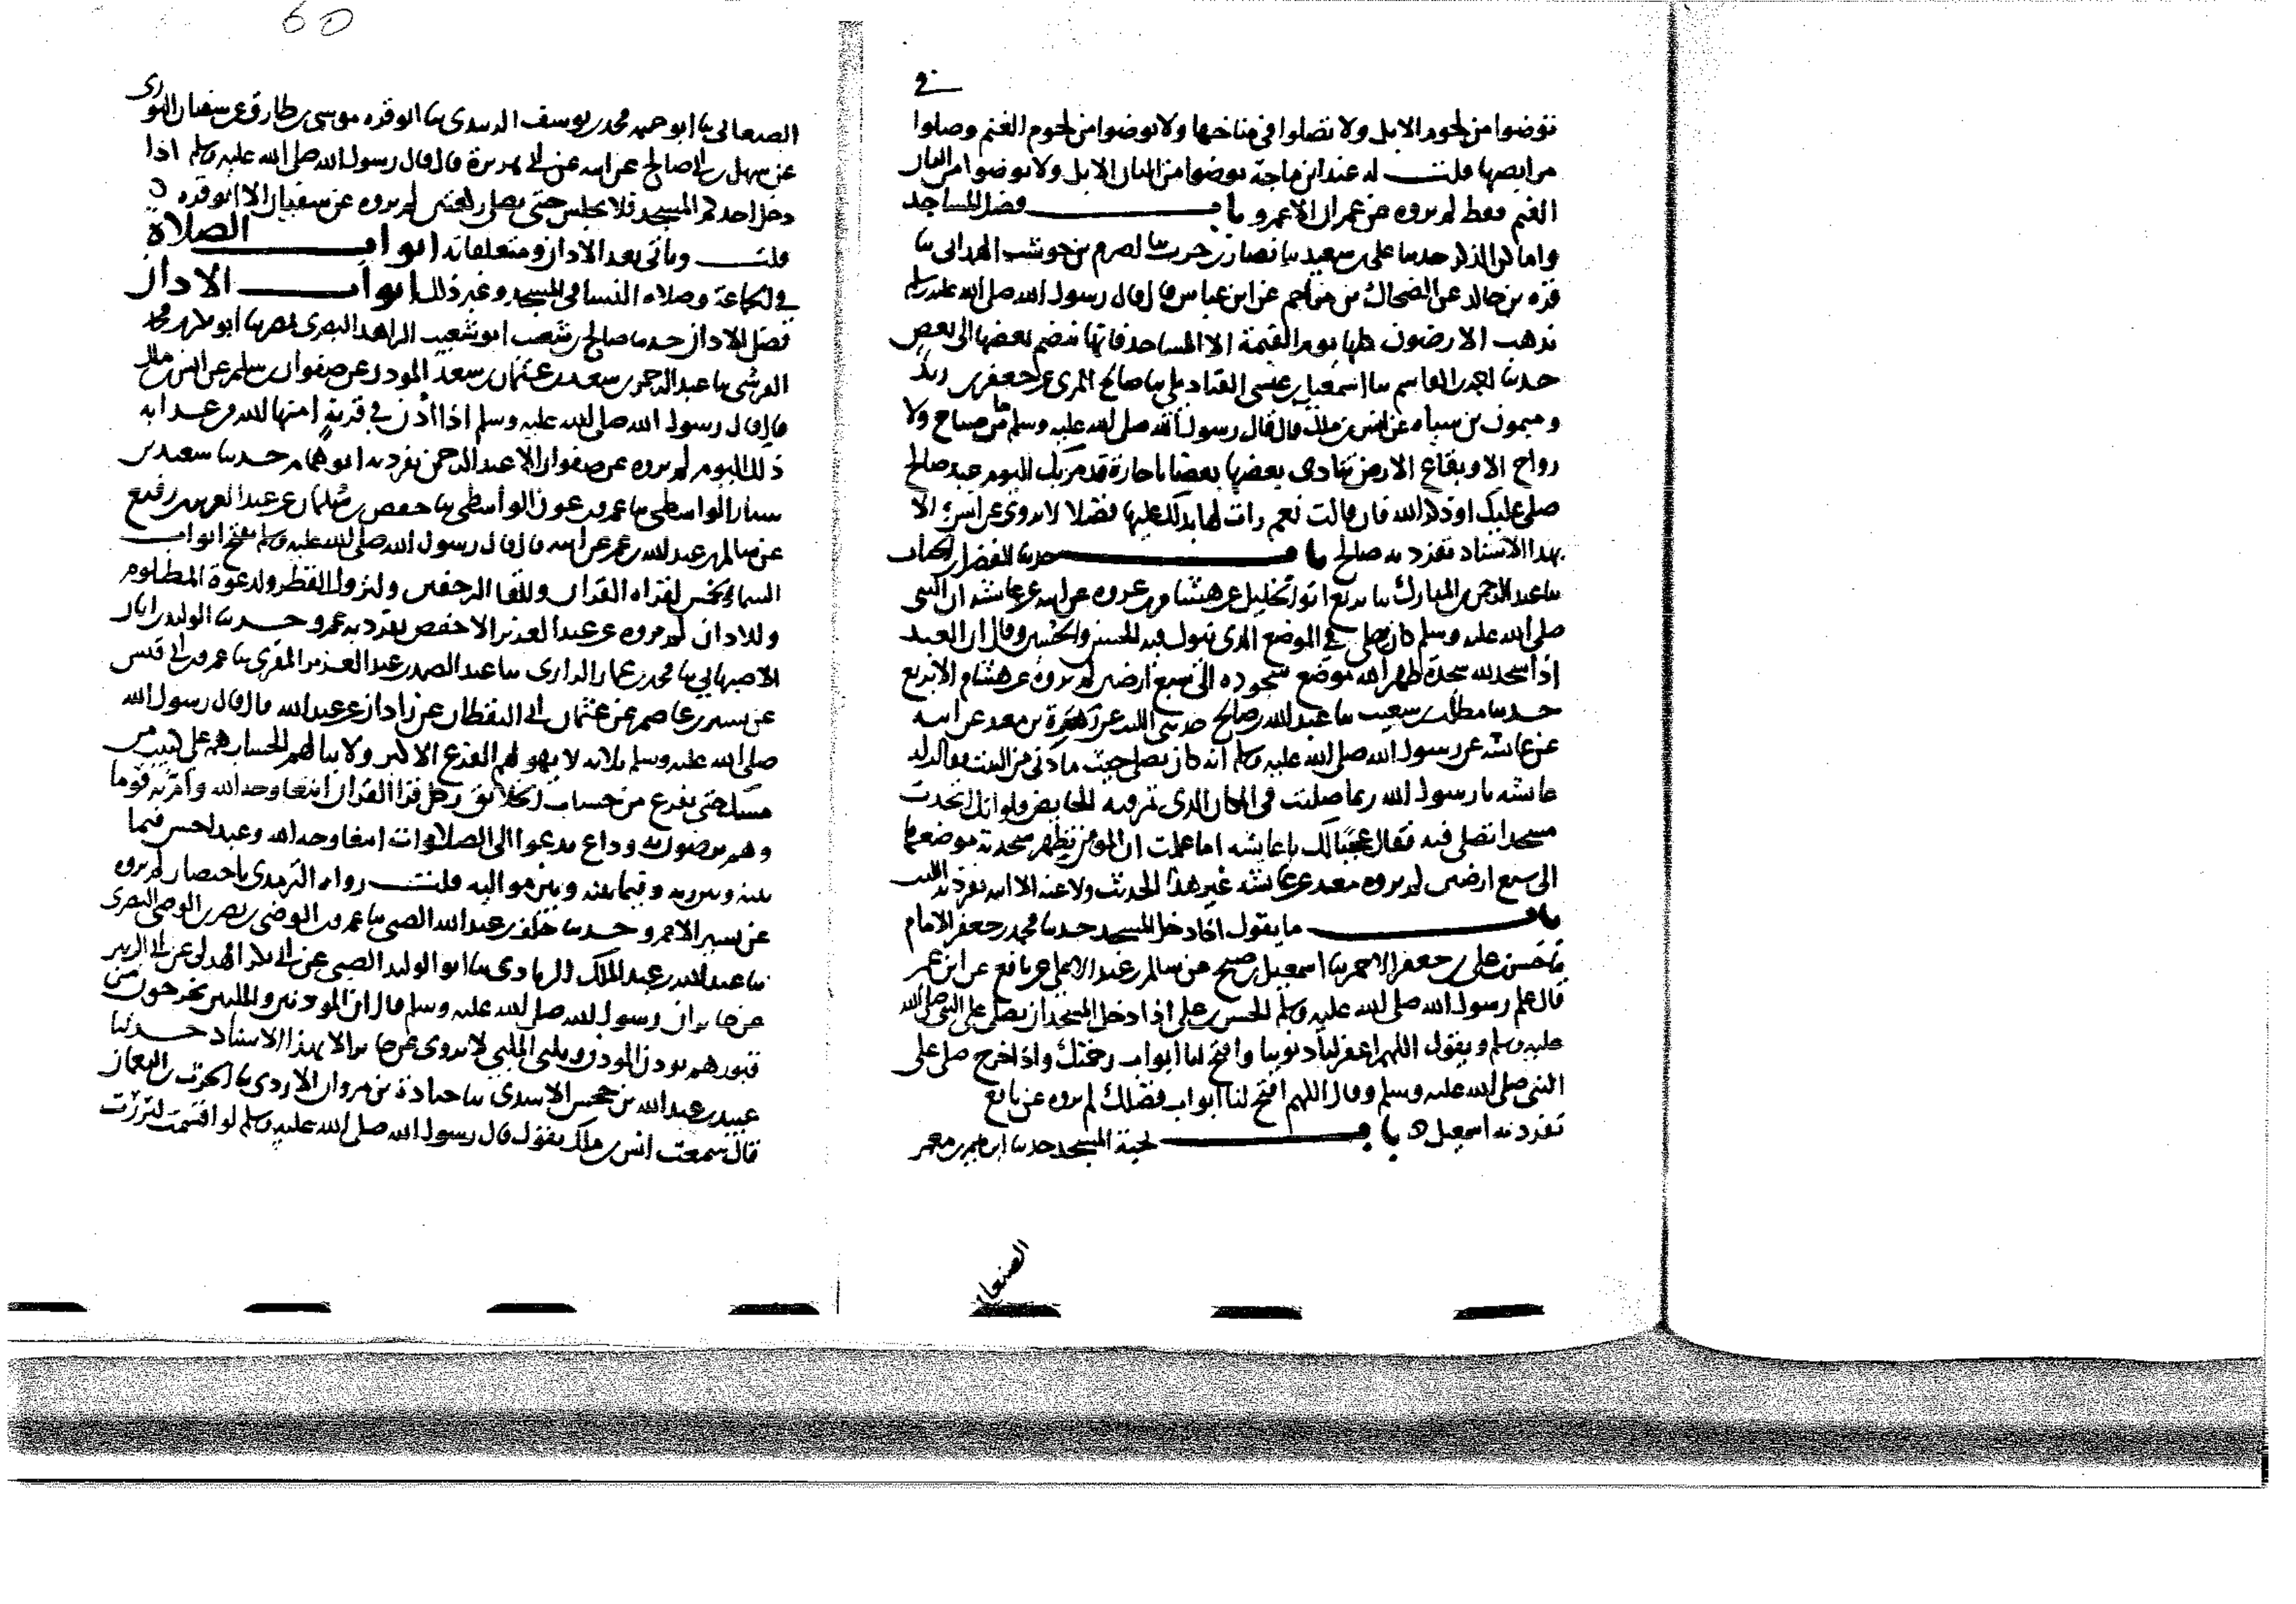 في
توضوا من لحوم الابل ولا تصلوا في مناخها ولا توضوا من لحوم الغنم وصلوا
مرابضها قلت له عند ابن ماجة توضوا من البان الابل ولا توضوا من البان
الغنم فقط لم يروه عن عمران الا عمرو باب فضل المساجد
واماكن الذكر حدثنا علي بن سعيد ثنا نصار بن حرب ثنا اصرم بن حوشب الهمداني ثنا
قره بن خالد عن الضحاك بن مزاحم عن ابن عباس قال قال رسول الله صلى الله عليه وسلم
تذهب الارضون كلها يوم القيمة الا المساجد فانها تنضم بعضها الى بعض
حدثنا احمد بن القاسم ثنا اسمعيل بن عيسى القناديلي ثنا صالح المري عن جعفر بن زيد
وميمون بن سياه عن انس بن ملك قال قال رسول الله صلى الله عليه وسلم ما من صباح ولا
رواح الا وبقاع الارض تنادى بعضها بعضا يا جارة قد مر بك اليوم عبد صالح
صلى عليك او ذكر الله فان قالت نعم رات لها بذلك عليها فضلا لا يروى عن انس الا
بهذا الاسناد تفرد به صالح باب حدثنا الفضل بن الحباب
ثنا عبد الرحمن بن المبارك ثنا بزيع ابو الخليل عن هشام بن عروه عن ابيه عن عائشه ان النبي
صلى الله عليه وسلم كان يصلي في الموضع الذي يبول فيه الحسن والحسين وقال ان العبد
اذا سجد لله سجدة طهر الله موضع سجوده الى سبع ارضين لم يروه عن هشام الا بزيع
حدثنا مطلب بن شعيب ثنا عبد الله بن صالح حدثني الليث عن زهرة بن معبد عن ابيه
عن عائشة عن رسول الله صلى الله عليه وسلم انه كان يصلي حيث ما دنى من البيت فقالت له
عائشه يا رسول الله ربما صليت في المكان الذي تمر فيه الحايض فلو انك اتخذت
مسجدا تصلي فيه فقال عجبا لك يا عايشه اما علمت ان المومن تطهر سجدته موضعها
الى سبع ارضين لم يروه معبد عن عائشه غير هذا الحديث ولا عنه الا ابنه تفرد به الليث
باب ما يقول اذا دخل المسجد حدثنا محمد بن جعفر الامام
ثنا حسن بن علي بن جعفر الاحمر ثنا اسمعيل بن صبيح عن سالم بن عبد الاعلى عن نافع عن ابن عمر
قال علم رسول الله صلى الله عليه وسلم الحسن بن علي اذا دخل المسجد ان يصلي على النبي صلى الله
عليه وسلم ويقول اللهم اغفر لنا ذنوبنا وافتح لنا ابواب رحمتك واذا خرج صلى على
النبي صلى الله عليه وسلم وقال اللهم افتح لنا ابواب فضلك لم يروه عن نافع
تفرد به اسمعيل باب تحية المسجد حدثنا ابراهيم بن معمر
الصنعا
60
الصنعاني ثنا ابو حمه محمد بن يوسف الزبيدي ثنا ابو قره موسى بن طارق عن سفيان الثوري
عن سهيل بن ابي صالح عن ابيه عن ابي هريرة قال قال رسول الله صلى الله عليه وسلم اذا
دخل احدكم المسجد فلا يجلس حتى يصلي ركعتين لم يروه عن سفيان الا ابو قره
قلت وياتي بعد الاذان ومتعلقاته ابواب الصلاة
في الجماعة وصلاه النسا في المسجد وغير ذلك ابواب الاذان
فضل الاذان حدثنا صالح بن شعيب ابو شعيب الزاهد البصري بمصر ثنا ابو همام محمد
القرشي ثنا عبد الرحمن بن سعد بن عثمان بن سعد المودن عن صفوان بن سليم عن انس بن ملك
قال قال رسول الله صلى الله عليه وسلم اذا أذن في قرية امنها الله من عذابه
ذلك اليوم لم يروه عن صفوان الا عبد الرحمن تفرد به ابو همام حدثنا سعيد بن
سيار الواسطي ثنا عمرو بن عون الواسطي ثنا حفص بن سليمان عن عبد العزيز بن رفيع
عن سالم بن عبد الله بن عمر عن ابيه قال قال رسول الله صلى الله عليه وسلم تفتح ابواب
السما لخمس لقراه القران وللقا الزحفين ولنزول القطر ولدعوة المظلوم
وللاذان لم يروه عن عبد العزيز الا حفص تفرد به عمرو حدثنا الوليد بن ابان
الاصبهاني ثنا محمد بن عمار الرازي ثنا عبد الصمد بن عبد العزيز المقري ثنا عمرو بن ابي قيس
عن بشير بن عاصم عن عثمان ابي اليقظان عن زاذان عن عبد الله قال قال رسول الله
صلى الله عليه وسلم ثلاثه لا يهولهم الفزع الاكبر ولا ينالهم الحساب هم على كثيب من
مسك حتى يفرغ من حساب الخلائق رجل قرا القران ابتغا وجه الله وام به قوما
وهم يرضون به وداع يدعوا الى الصلاوات ابتغا وجه الله وعبد احسن فيما
بينه وبين ربه وفيما بينه وبين مواليه قلت رواه الترمذي باختصار لم يروه
عن بشير الا عمرو حدثنا خلف بن عبد الله الضبي ثنا عمرو بن الوضي بن نصر بن الوضي البصري
ثنا عبد الله بن عبد الملك الزيادي ثنا ابو الوليد الضبي عن ابي بكر الهذلي عن ابي الزبير
عن جابر ان رسول الله صلى الله عليه وسلم قال ان المودنين والملبين يخرجون من
قبورهم يوذن الموذن ويلبي الملبي لا يروى عن جابر الا بهذا الاسناد حدثنا
عبيد بن عبد الله بن جحش الاسدي ثنا جنادة بن مروان الازدي ثنا الحرث بن النعمان
قال سمعت انس بن ملك يقول قال رسول الله صلى الله عليه وسلم لو اقسمت لبررت